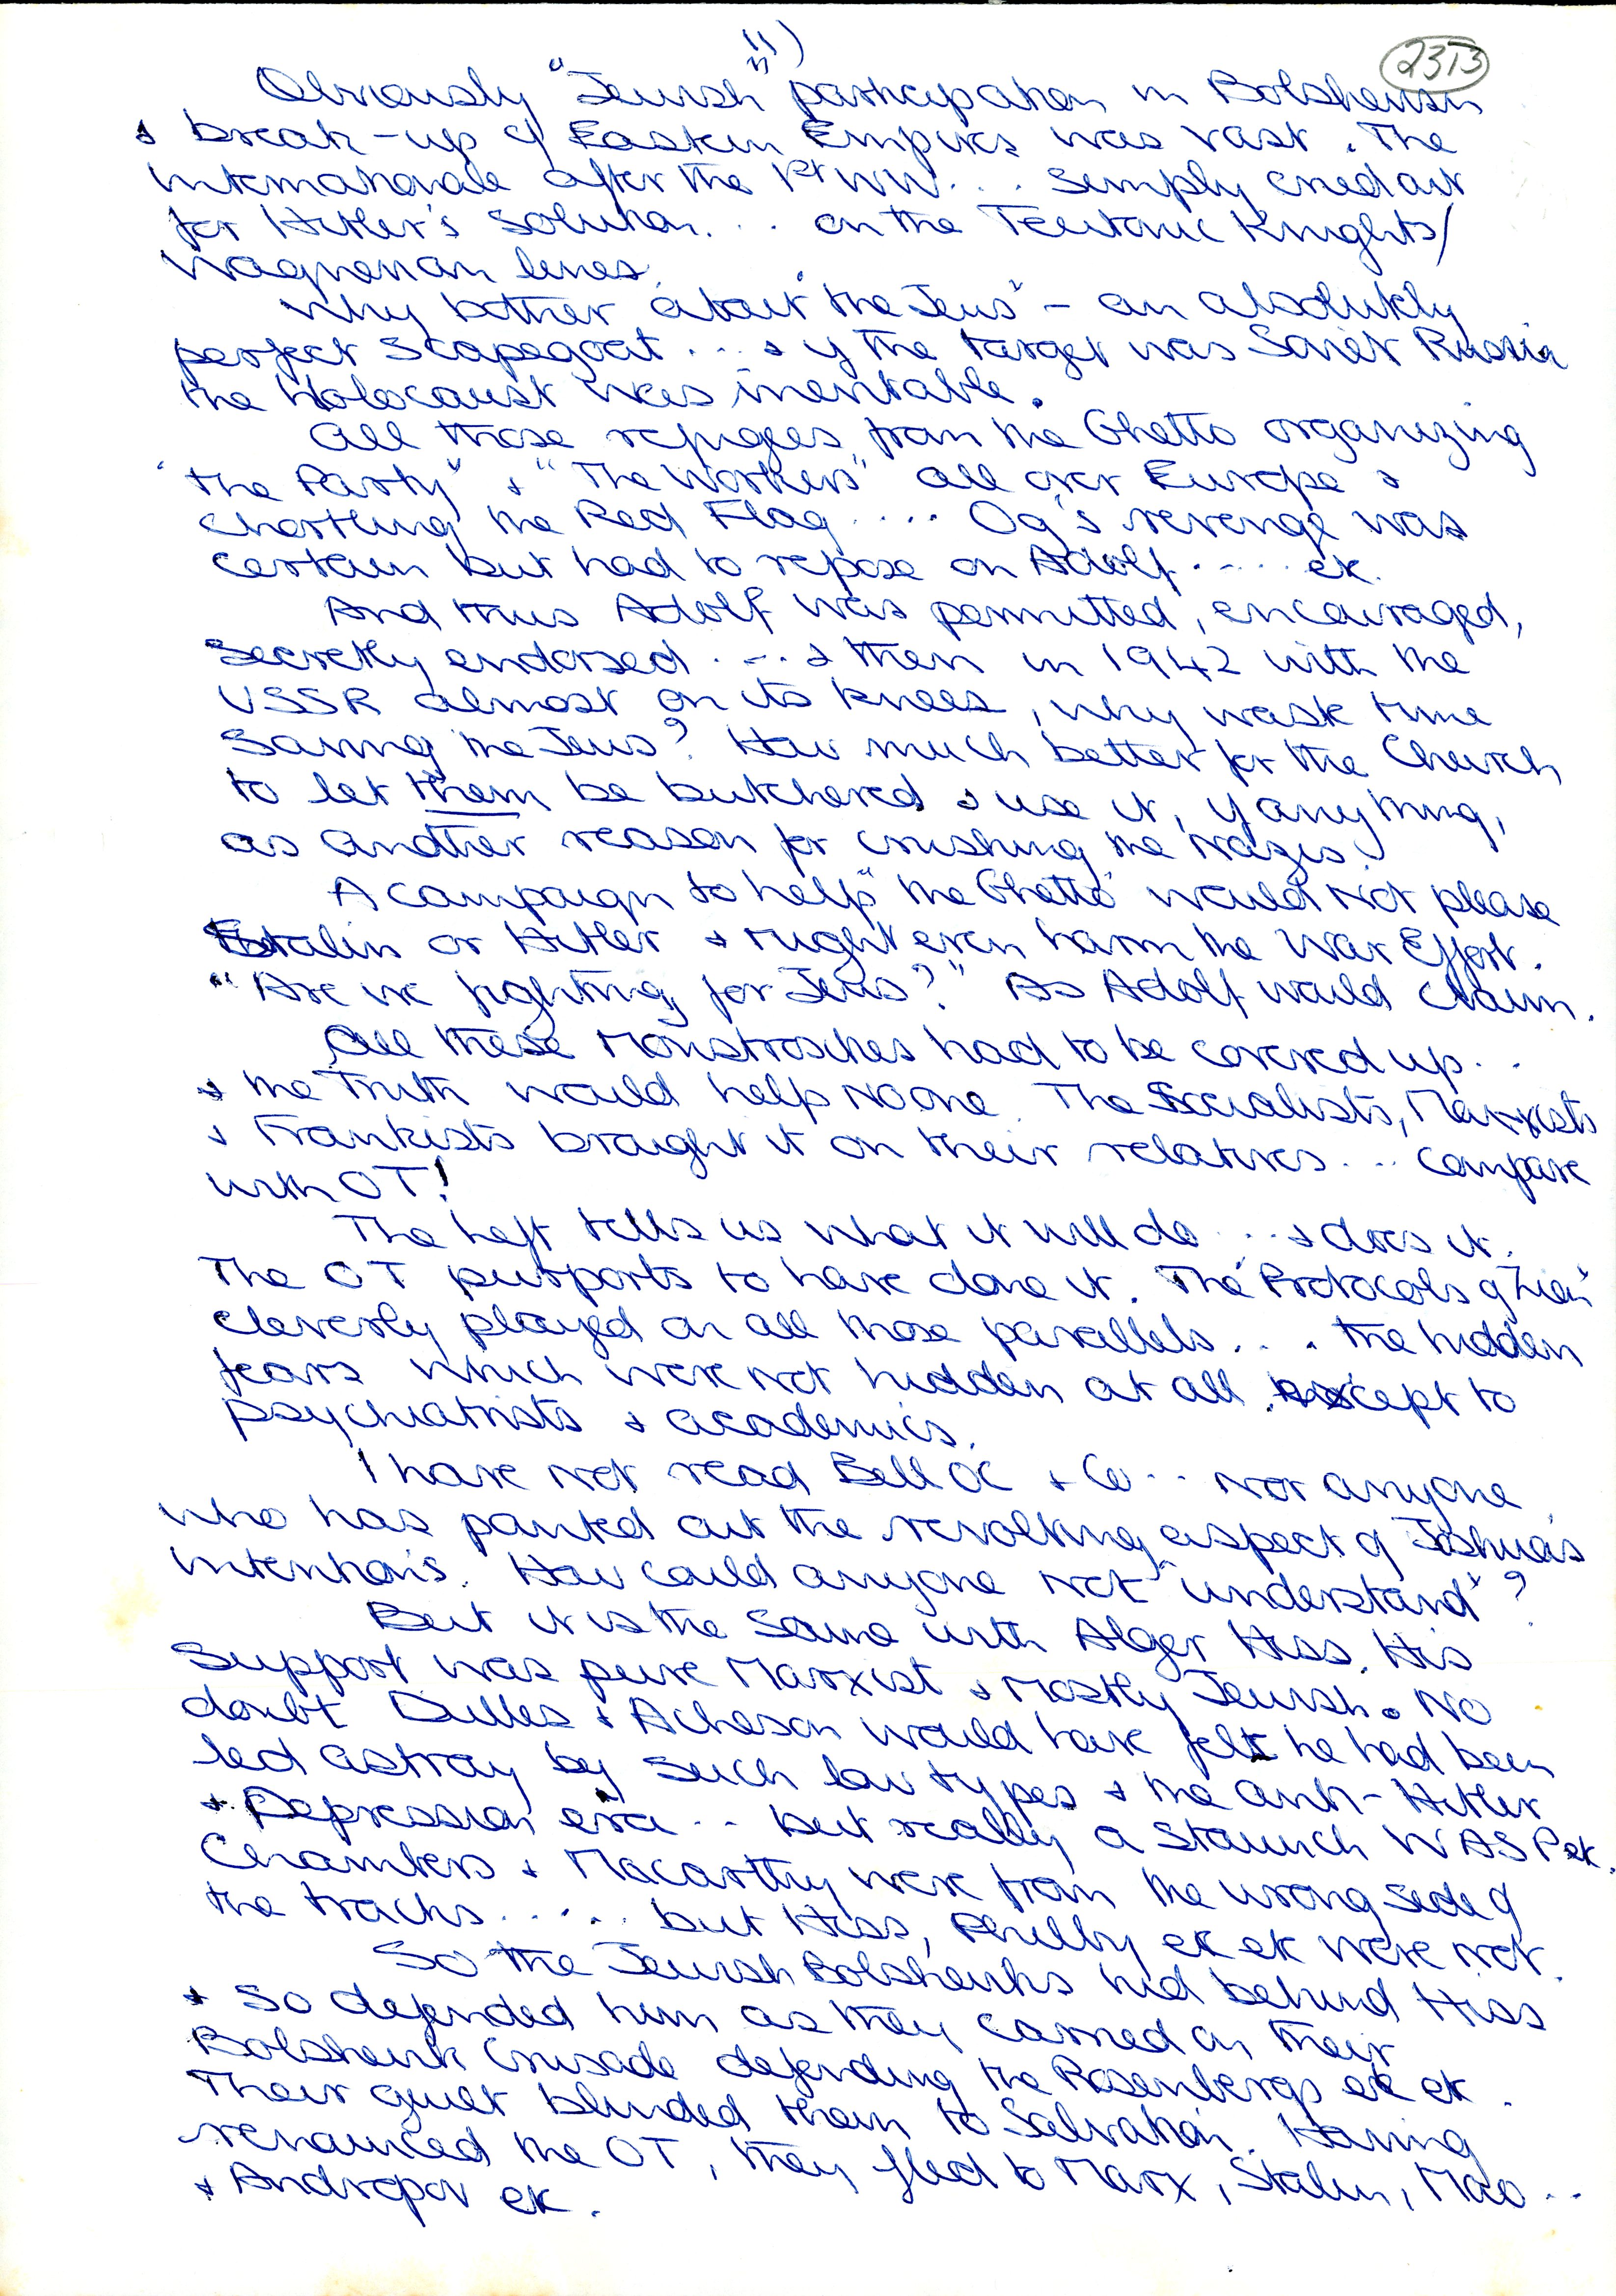 11)
2313
Obviously "Jewish" participation in Bolshevism
& break-up of Eastern Empires was vast. The
Internationale after the 1st WW... simply cried out
for Hitler's solution... on the Teutonic Knights/
Wagnerian lines.
Why bother about "the Jews" - an absolutely
perfect scapegoat... & if the target was Soviet Russia
the Holocaust was inevitable.
All those refugees from the Ghetto organizing
"the Party" & "The Workers" all over Europe &
chortling the Red Flag.... Og's revenge was
certain but had to repose on Adolf..... etc.
And thus Adolf was permitted, encouraged,
secretly endorsed.... & then in 1942 with the
USSR almost on its knees, why waste time
saving the Jews? How much better for the Church
to let them be butchered & use it, if anything,
as another reason for crushing the Nazis.
A campaign to help "the Ghetto" would not please
Stalin or Hitler & might even harm the War Effort.
"Are we fighting for Jews?" As Adolf would claim.
All these Monstrosities had to be covered up..
& the Truth would help no one. The Socialists, Marxists
& Frankists brought it on their relatives... compare
with OT!
The Left tells us what it will do... & does it.
The OT purports to have done it. The "Protocols of Zion"
cleverly played on all those parallels... the hidden
fears which were not hidden at all except to
psychiatrists & academics.
I have not read Belloc & Co.. nor anyone
who has pointed out the revolting aspect of Joshua's
intentions. How could anyone not "understand"?
But it is the same with Alger Hiss. His
support was pure Marxist & Mostly Jewish. No
doubt Dulles & Acheson would have felt he had been
led astray by such low types & the anti-Hitler
& Depression era.. but really a staunch WASP etc.
Chambers & Macarthy were from the wrong side of
the tracks..... but Hiss, Philby etc etc were not.
So the Jewish Bolsheviks hid behind Hiss
& so defended him as they carried on their
Bolshevik Crusade defending the Rosenbergs etc etc.
Their guilt blinded them to Salvation. Having
renounced the OT, they fled to Marx, Stalin, Mao..
& Andropov etc.